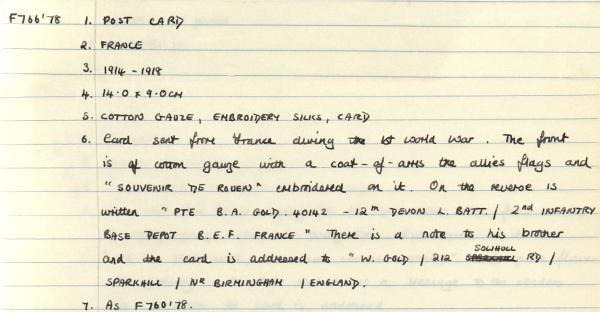 F766'78 1. POST CARD
2. FRANCE
3. 1914 - 1918
4. 14.0 x 9.0 CM
5. COTTON GAUZE, EMBROIDERY SILKS, CARD
6. Card sent from France during the 1st World War. The front
is of cotton gauze with a coat-of-arms the allies flags and
"SOUVENIR DE ROUEN" embroidered on it. On the reverse is
written "PTE B.A. GOLD. 40142 - 12th DEVON L. BATT. / 2nd INFANTRY
BASE DEPOT B.E.F. FRANCE" There is a note to his brother
and the card is addressed to "W. GOLD / 212 SPARKHILL SOLIHULL RD /
SPARKHILL / NR BIRMINGHAM / ENGLAND.
7. AS F760'78.